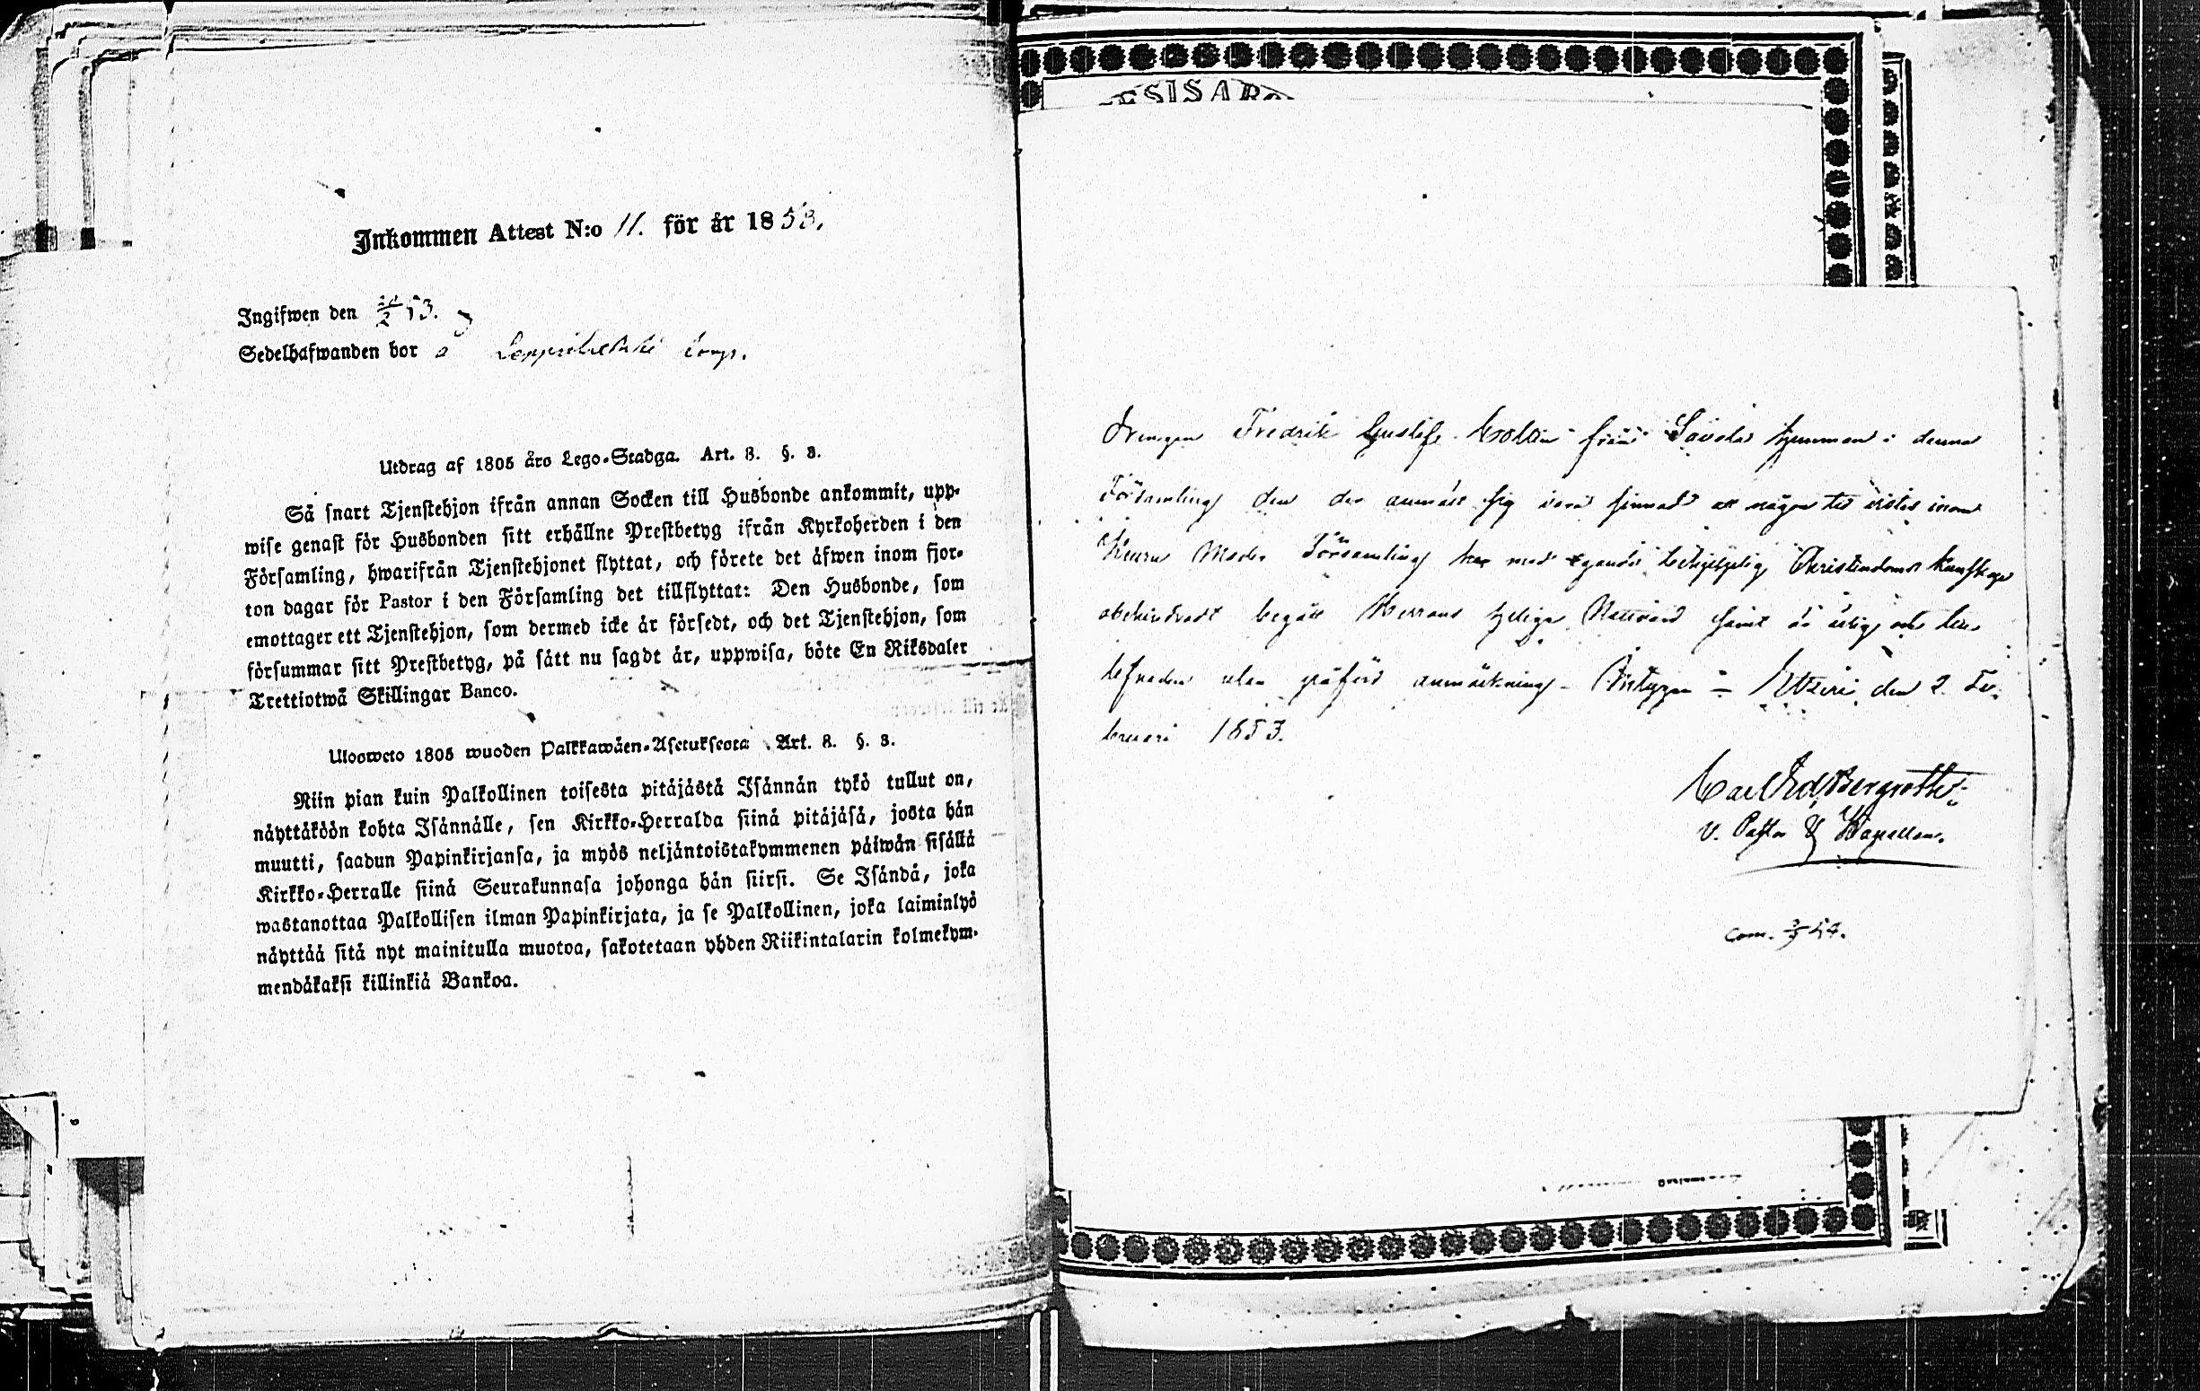 Inkommen Attest N:o 11. för år 1853.
Ingifwen den 53.
Sedelhafwanden bor å torp.
Utdrag af 1805 års Lego-Stadga. Art. 8. §. 3.
Så snart Tjenstehjon ifrån annan Socken till Husbonde ankommit, upp-
wise genast för Husbonden sitt erhållne Prestbetyg ifrån Kyrkoherden i den
Församling, hwarifrån Tjenstehjonet flyttat, och förete det äfwen inom fjor-
ton dagar för Pastor i den Församling det tillflyttat: Den Husbonde, som
emottager ett Tjenstehjon, som dermed icke är försedt, och det Tjenstehjon, som
försummar sitt Prestbetyg, på sätt nu sagdt är, uppwisa, böte En Riksdaler
Trettiotwå Skillingar Banco.
Ulosweto 1805 wuoden Palkkawäen-Asetuksesta Art. 8. §. 3.
Niin pian kuin Palkollinen toisesta pitäjästä Isännän tykö tullut on,
näyttäköön kohta Isännälle, sen Kirkko-Herralda siinä pitäjäsä, josta hän
muutti, saadun Papinkirjansa, ja myös neljäntoistakymmenen päiwän sisällä
Kirkko-Herralle siinä Seurakunnasa johonga hän siirsi. Se Isändä, joka
wastanottaa Palkollisen ilman Papinkirjata, ja se Palkollinen, joka laiminlyö
näyttää sitä nyt mainitulla muotoa, sakotetaan yhden Riikintalarin kolmekym-
mendäkaksi killinkiä Bankoa.
SISAR
Drengen Fredrik Gustaf från Savola hemman i denna
Församling den der anmält sig vara sinnad att någon tid vistas inom
Keuru Moder Församling har med egande Christendoms kunskap
obehindradt begått Herrans heliga Nattvard samt är ärlig och till
lefnaden utan anmärkning. Etseri den 2 Fe-
bruari 1853.
Carl Ed. Bergroth
V. Pastor & Kapellan.
com. 54.